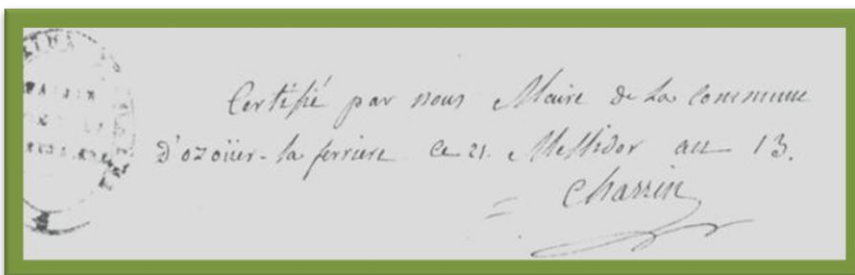 Certifié par nous Maire de la Commune
d'ozoüer-la ferriere ce 21. Messidor an 13.
= Chassin